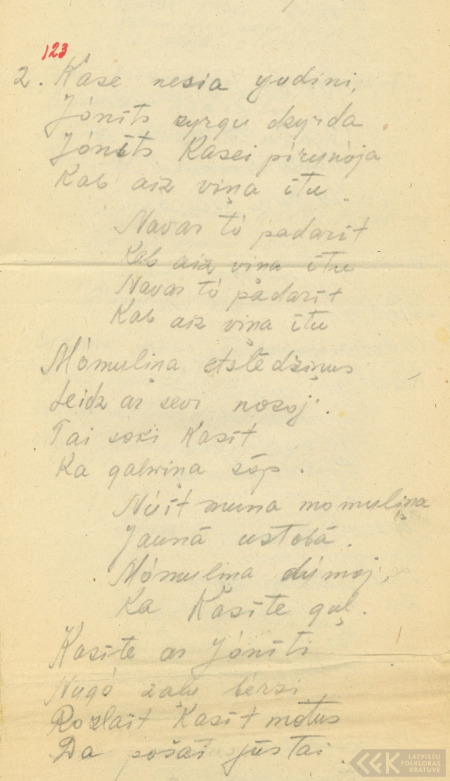 123
2. Kase nesia yudini,
Jónits zyrgu dzyrda.
Jónits Kasei pīrunója
Kab aiz viņa ītu.
Navar tó padarīt
Kab aiz viņa ītu
Navar tó padarīt
Kab aiz viņa ītu
Mómuliņa atslēdziņus
Leidz ar sevi nosoj.
Tai soki Kasīt
Ka galwiņa sóp.
Nūit muna momuliņa
Jaunā ustobā.
Mómuliņa dūmoj,
Ka Kasīte guļ.
Kasīte ar Jónīti
Nugó zaļu bērzi
Rozlait Kasīt motus
Da pošai jūstai.
LATVIEŠU
FOLKLORAS
KRĀTUVE